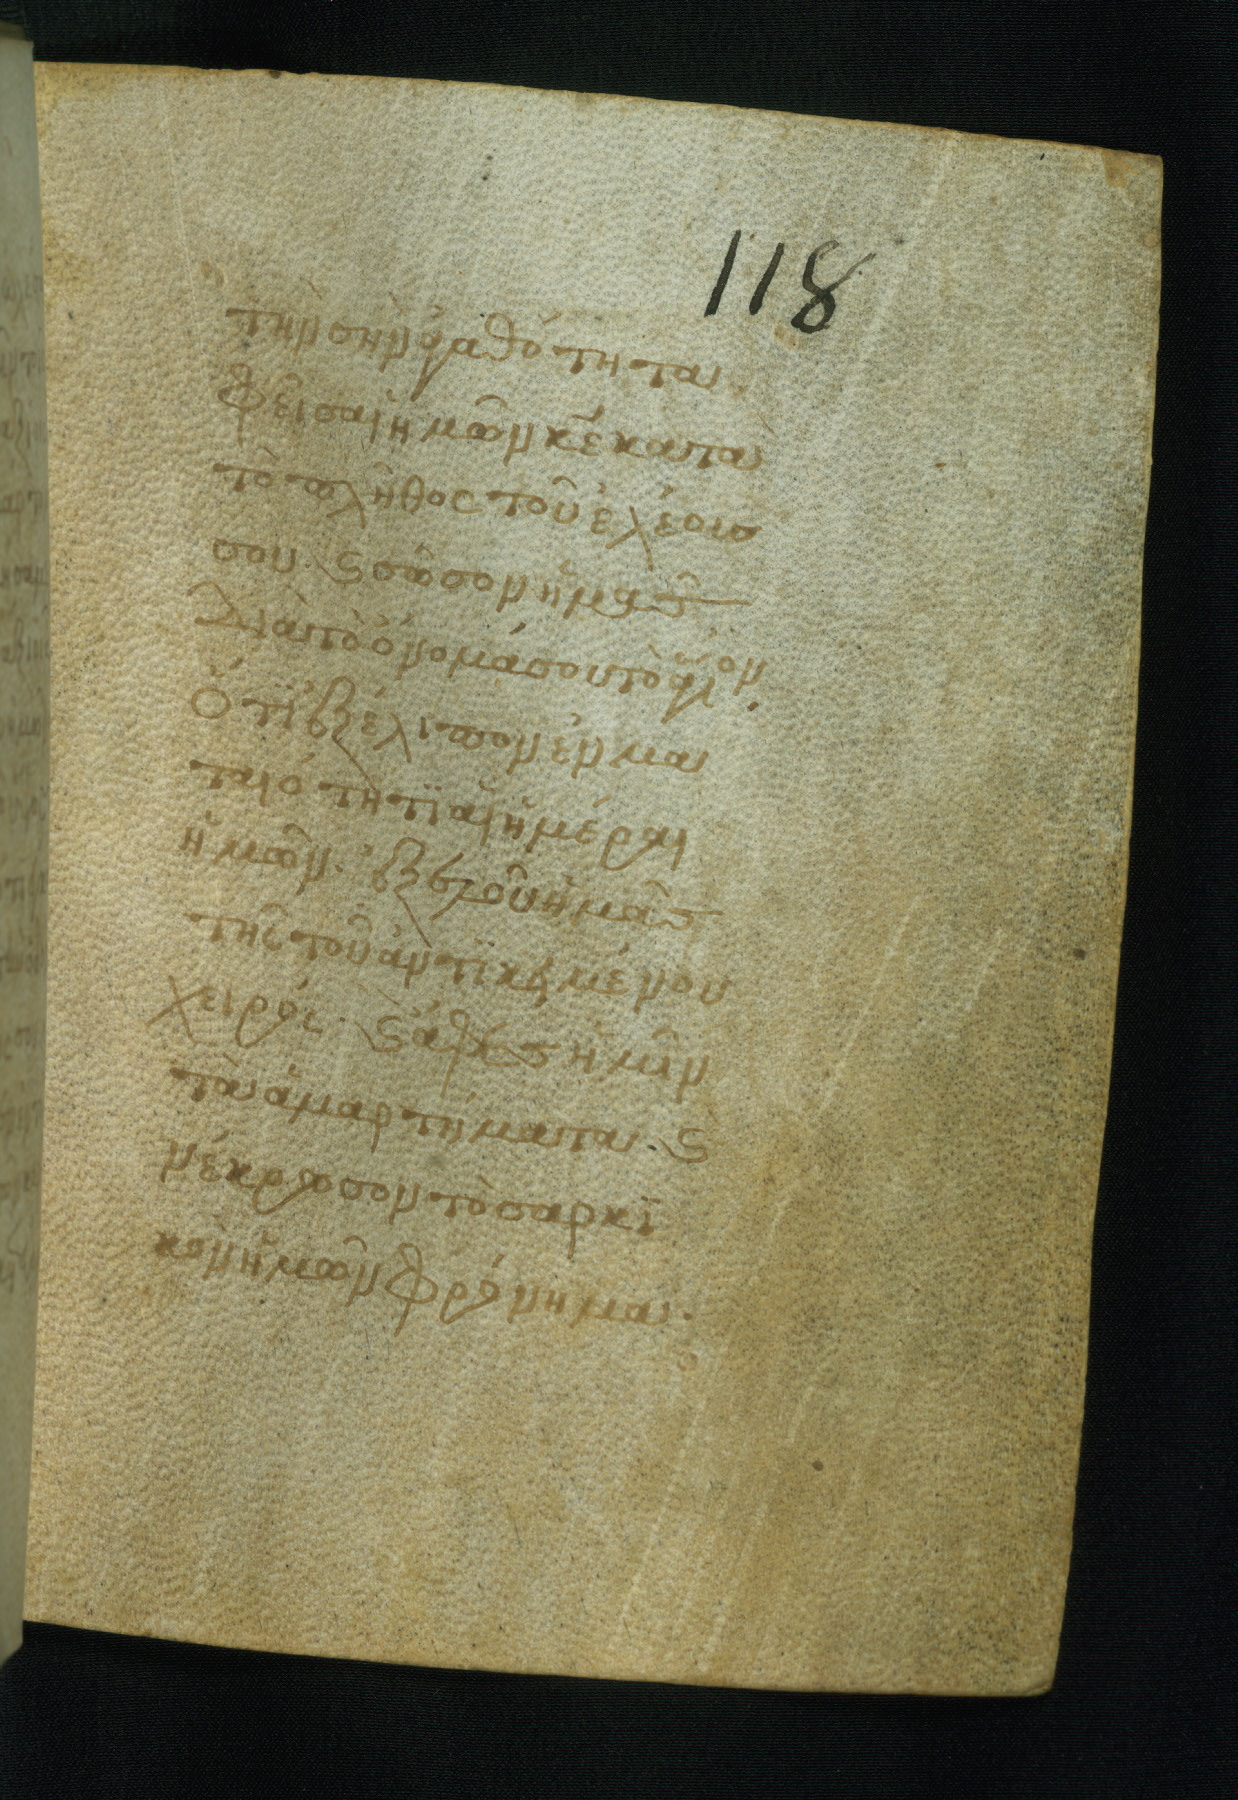 118
τὴν σὴν ἀγαθότητα.
φεῖσαι ἡμῶν κε κατα
τὸ πλῆθος τοῦ ἐλέους
σου. ϛ σῶσον ἡμᾶς
διὰ τὸ ὄνομά σου τὸ ἅγιον.
Ὅτι ἐξέλιπον ἐν μα
ταιότητι αἱ ἡμέραι
ἡμῶν. ἐξελοῦ ἡμᾶς
τῆς τοῦ ἀντικειμένου
χειρός. ϛ ἄφες ἡμῖν
τὰ ἁμαρτήματα. ϛ
νέκρωσον τὸ σαρκι
κὸν ἡμῶν φρόνημα.